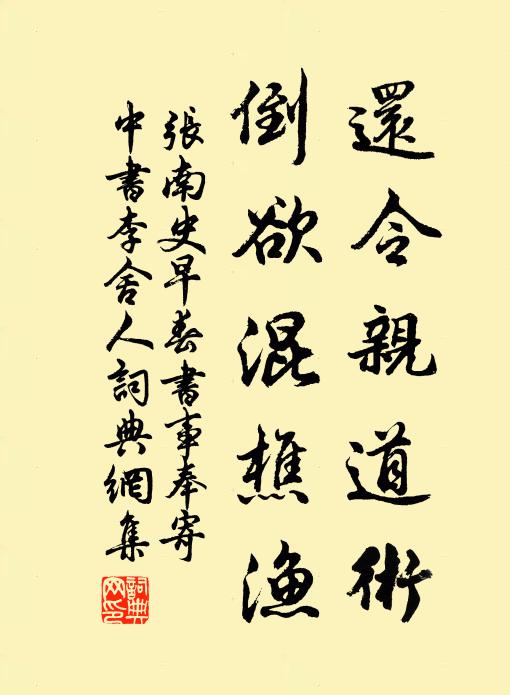 還令親道術
倒欲混樵漁
張南史早春書事奉寄
中書李舍人詞典網集